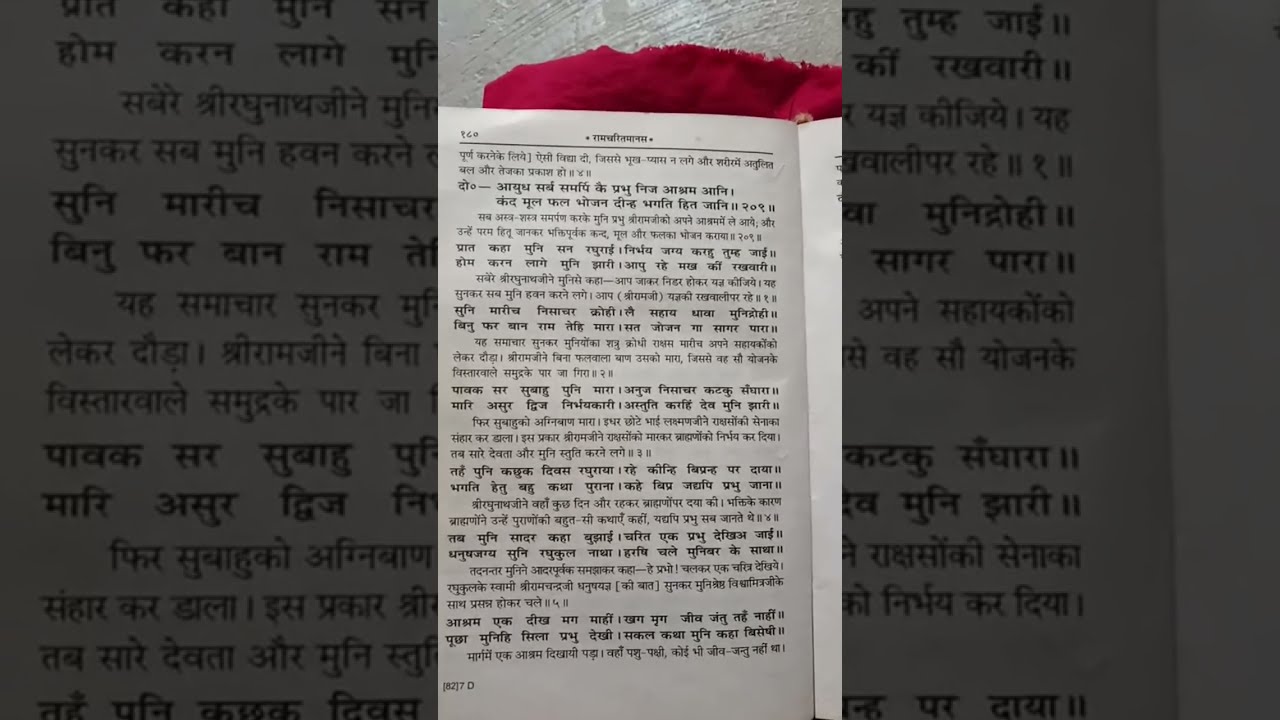 १८०
* रामचरितमानस *
पूर्ण करनेके लिये] ऐसी विद्या दी, जिससे भूख-प्यास न लगे और शरीरमें अतुलित
बल और तेजका प्रकाश हो॥ ४॥
दो०— आयुध सर्ब समर्पि कै प्रभु निज आश्रम आनि।
कंद मूल फल भोजन दीन्ह भगति हित जानि॥ २०९॥
सब अस्त्र-शस्त्र समर्पण करके मुनि प्रभु श्रीरामजीको अपने आश्रममें ले आये; और
उन्हें परम हितू जानकर भक्तिपूर्वक कन्द, मूल और फलका भोजन कराया॥ २०९॥
प्रात कहा मुनि सन रघुराई। निर्भय जग्य करहु तुम्ह जाई॥
होम करन लागे मुनि झारी। आपु रहे मख कीं रखवारी॥
सबेरे श्रीरघुनाथजीने मुनिसे कहा—आप जाकर निडर होकर यज्ञ कीजिये। यह
सुनकर सब मुनि हवन करने लगे। आप (श्रीरामजी) यज्ञकी रखवालीपर रहे॥ १॥
सुनि मारीच निसाचर क्रोही। लै सहाय धावा मुनिद्रोही॥
बिनु फर बान राम तेहि मारा। सत जोजन गा सागर पारा॥
यह समाचार सुनकर मुनियोंका शत्रु क्रोधी राक्षस मारीच अपने सहायकोंको
लेकर दौड़ा। श्रीरामजीने बिना फलवाला बाण उसको मारा, जिससे वह सौ योजनके
विस्तारवाले समुद्रके पार जा गिरा॥ २॥
पावक सर सुबाहु पुनि मारा। अनुज निसाचर कटकु सँघारा॥
मारि असुर द्विज निर्भयकारी। अस्तुति करहिं देव मुनि झारी॥
फिर सुबाहुको अग्निबाण मारा। इधर छोटे भाई लक्ष्मणजीने राक्षसोंकी सेनाका
संहार कर डाला। इस प्रकार श्रीरामजीने राक्षसोंको मारकर ब्राह्मणोंको निर्भय कर दिया।
तब सारे देवता और मुनि स्तुति करने लगे॥ ३॥
तहँ पुनि कछुक दिवस रघुराया। रहे कीन्हि बिप्रन्ह पर दाया॥
भगति हेतु बहु कथा पुराना। कहे बिप्र जद्यपि प्रभु जाना॥
श्रीरघुनाथजीने वहाँ कुछ दिन और रहकर ब्राह्मणोंपर दया की। भक्तिके कारण
ब्राह्मणोंने उन्हें पुराणोंकी बहुत-सी कथाएँ कहीं, यद्यपि प्रभु सब जानते थे॥ ४॥
तब मुनि सादर कहा बुझाई। चरित एक प्रभु देखिअ जाई॥
धनुषजग्य सुनि रघुकुल नाथा। हरषि चले मुनिबर के साथा॥
तदनन्तर मुनिने आदरपूर्वक समझाकर कहा—हे प्रभो! चलकर एक चरित्र देखिये।
रघुकुलके स्वामी श्रीरामचन्द्रजी धनुषयज्ञ [की बात] सुनकर मुनिश्रेष्ठ विश्वामित्रजीके
साथ प्रसन्न होकर चले॥ ५॥
आश्रम एक दीख मग माहीं। खग मृग जीव जंतु तहँ नाहीं॥
पूछा मुनिहि सिला प्रभु देखी। सकल कथा मुनि कहा बिसेषी॥
मार्गमें एक आश्रम दिखायी पड़ा। वहाँ पशु-पक्षी, कोई भी जीव-जन्तु नहीं था।
[82]7 D